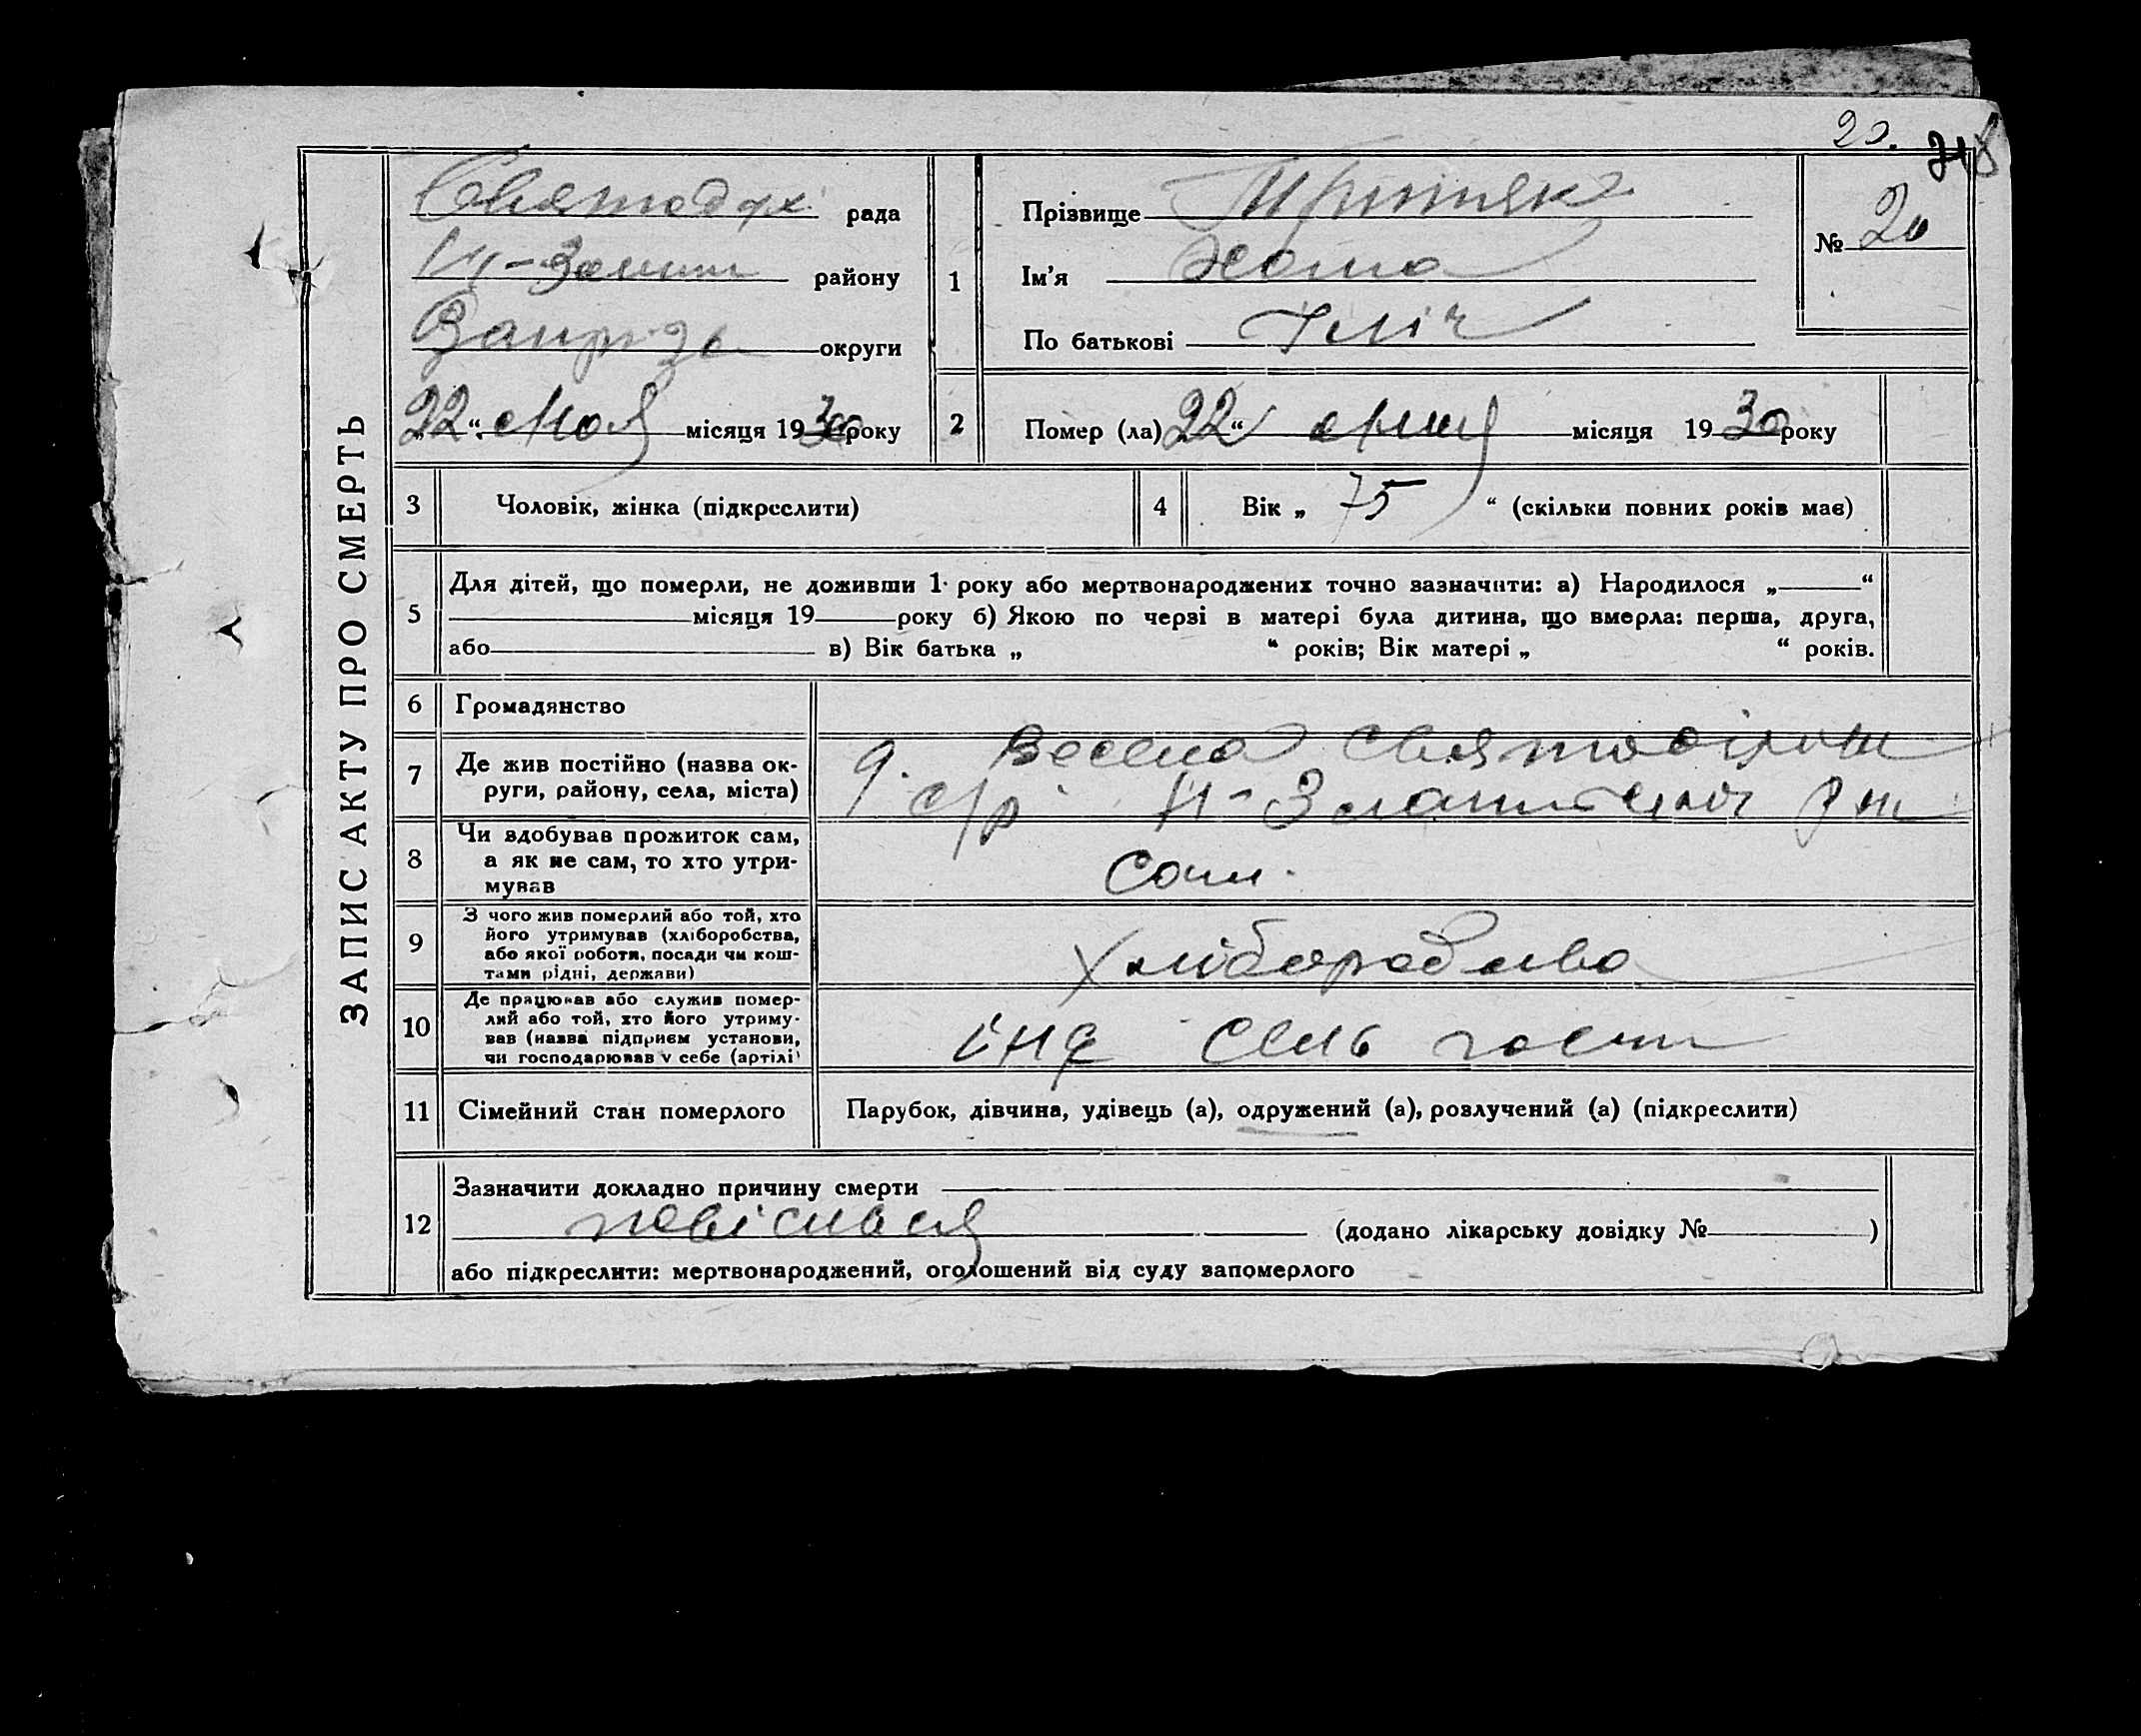 20.
ЗАПИС АКТУ ПРО СМЕРТЬ
Святодух. рада
району
округи
22 “ мая місяця 1930 року
1
Прізвище
Ім'я Хома
По батькові Ілліч
№ 20
2 Помер (ла) 22 “ мая місяця 1930 року
3 Чоловік, жінка (підкреслити)
4 Вік „ 75 “ (скільки повних років має)
5 Для дітей, що померли, не доживши 1 року або мертвонароджених точно зазначити: а) Народилося „ “
місяця 19 року б) Якою по черзі в матері була дитина, що вмерла: перша, друга,
або в) Вік батька „ “ років; Вік матері „ “ років.
6 Громадянство
7 Де жив постійно (назва ок-
руги, району, села, міста)
с/р
8 Чи здобував прожиток сам,
а як не сам, то хто утри-
мував
Сам.
9 З чого жив померлий або той, хто
його утримував (хліборобства,
або якої роботи, посади чи кош-
тами рідні, держави)
Хліборобство
10 Де працював або служив помер-
лий або той, хто його утриму-
вав (назва підприєм установи,
чи господарював у себе (артілі)
інд сель госп
11 Сімейний стан померлого Парубок, дівчина, удівець (а), одружений (а), розлучений (а) (підкреслити)
12 Зазначити докладно причину смерти
повісився (додано лікарську довідку № )
або підкреслити: мертвонароджений, оголошений від суду запомерлого